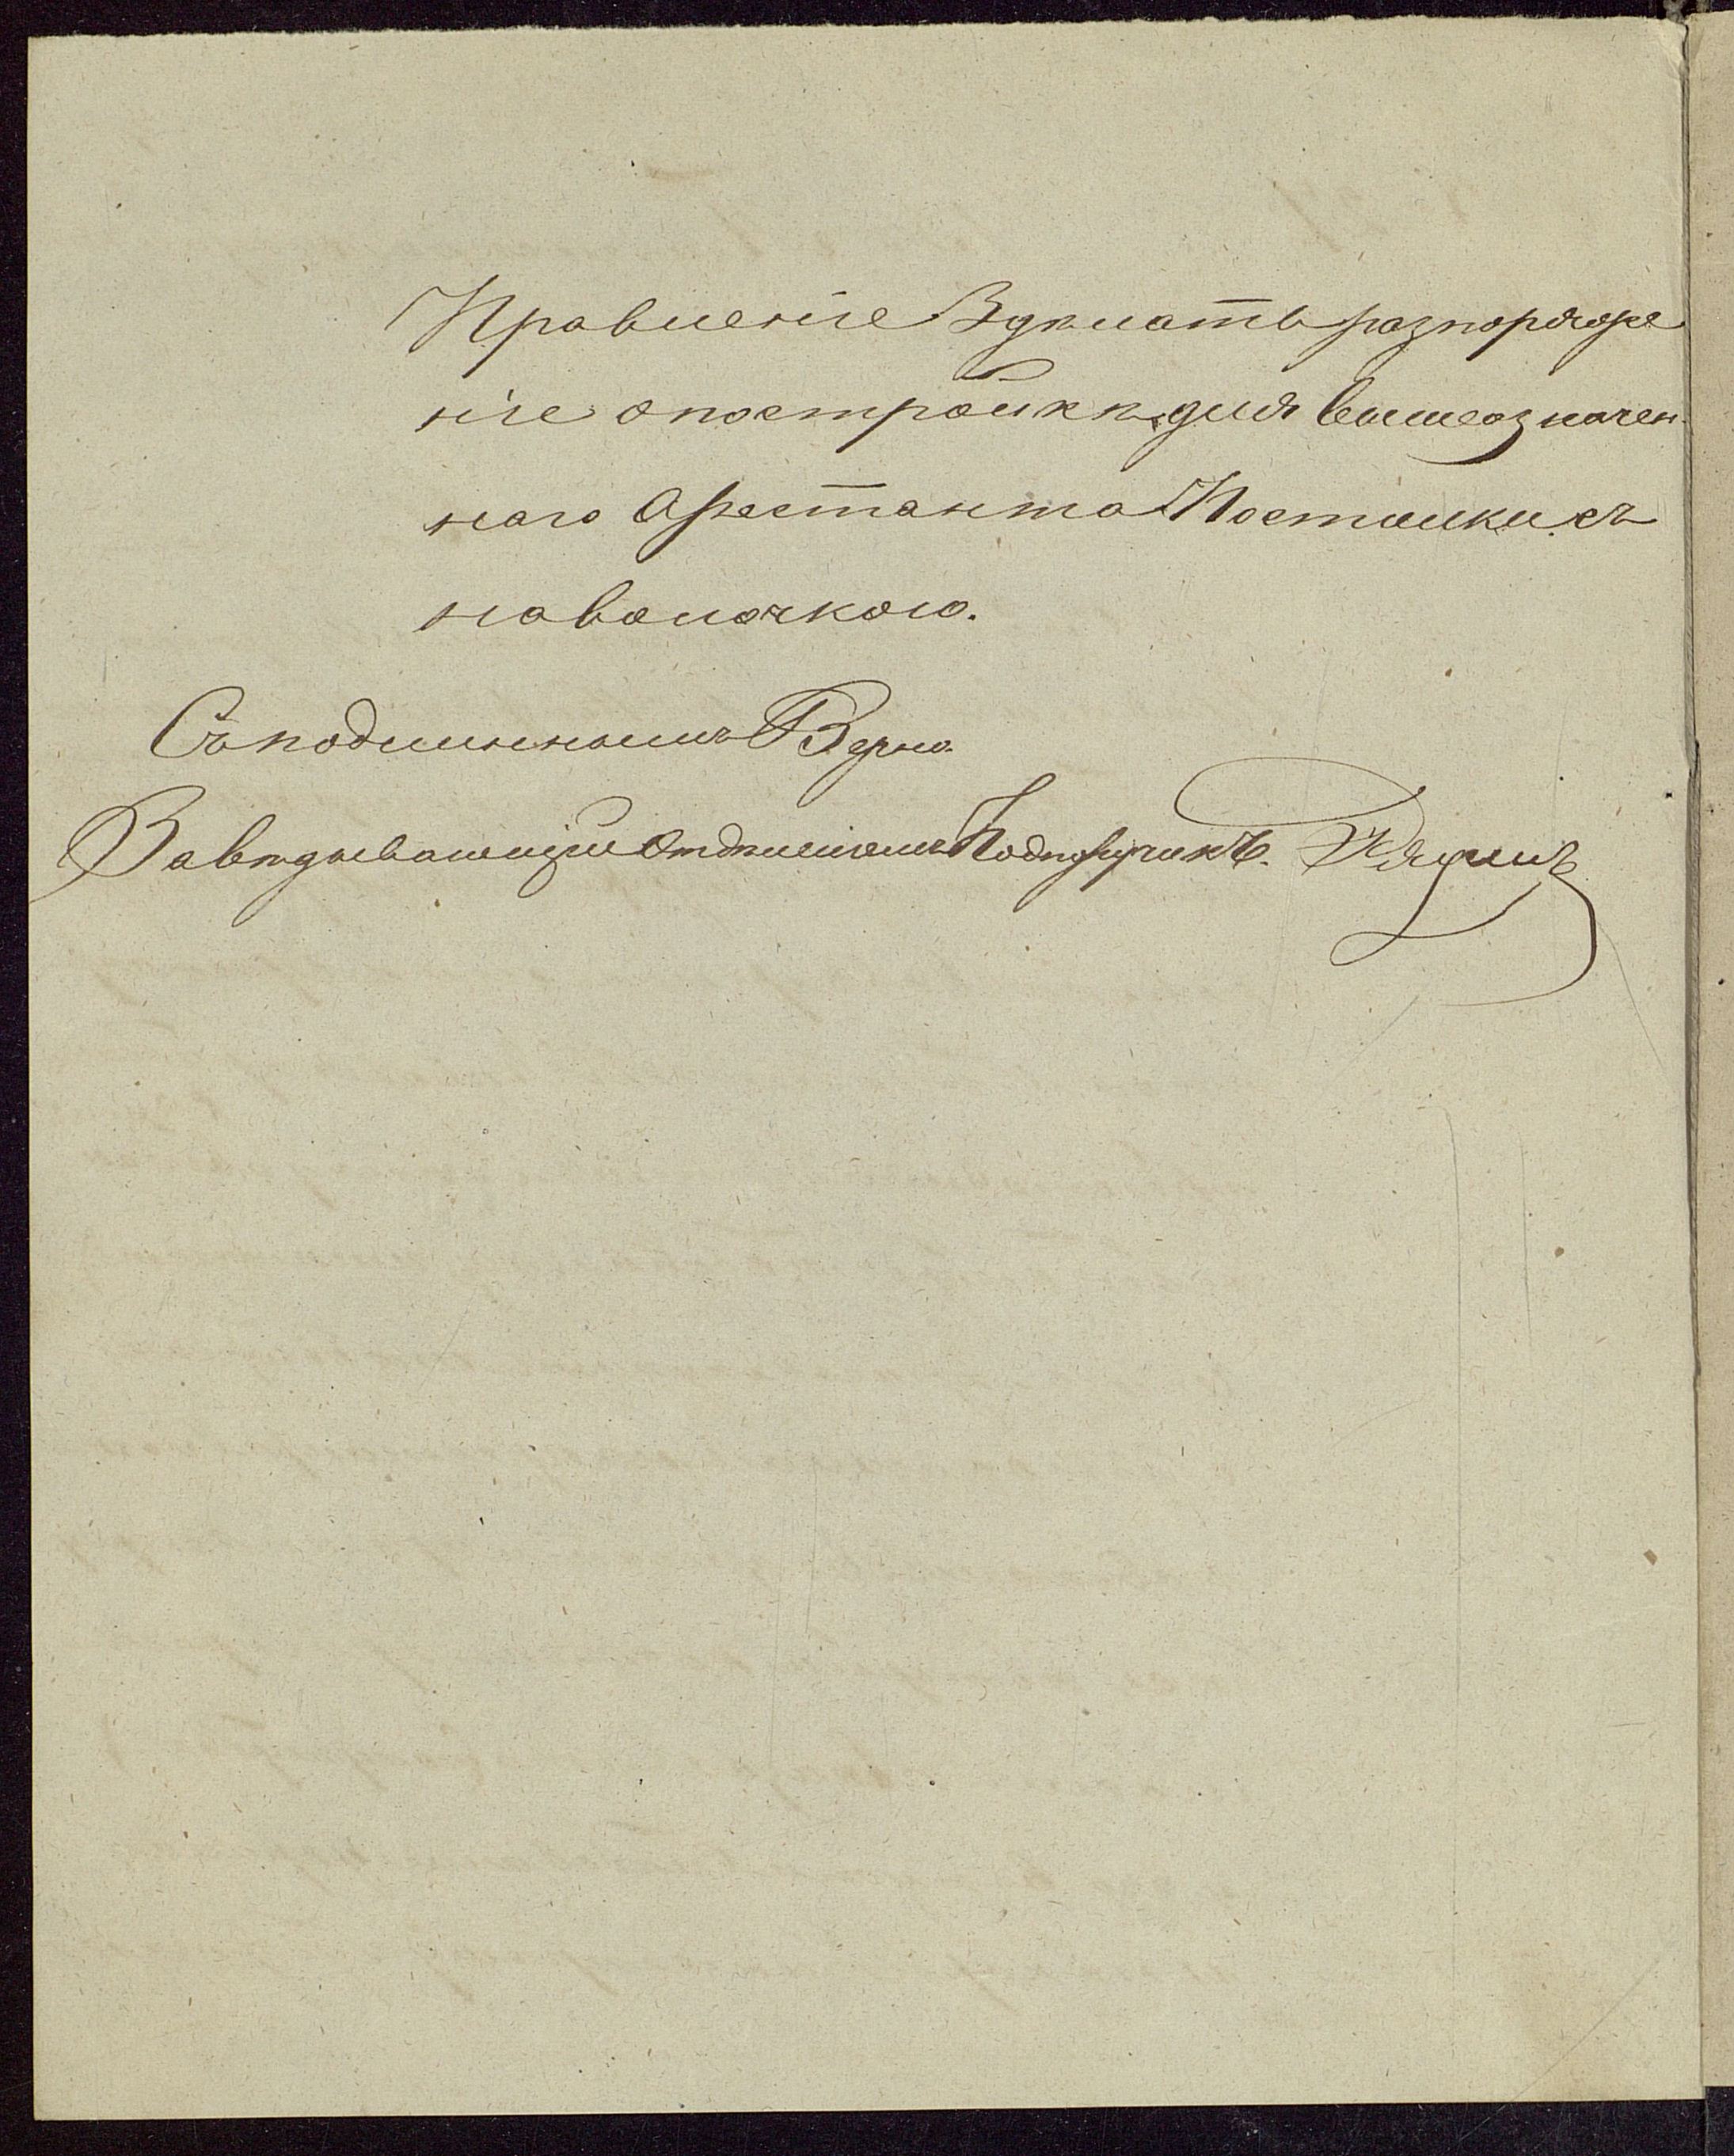 Правленіе Зделать разпоряже
ніе опостройкѣ для вышеозначен-
наго Арестанта Постилки съ
наволочкою.
Съ подлиннымъ Верно.
Завѣдывающій Отделеніемъ Подпоручикъ